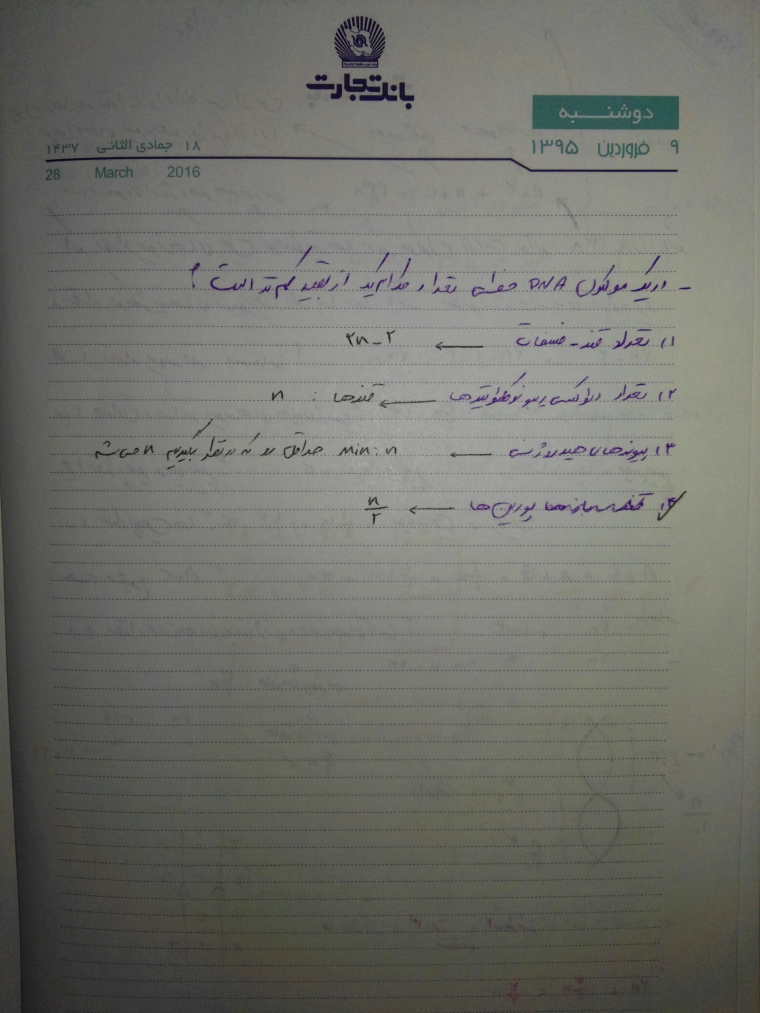 بانک تجارت
دوشنبه
۹ فروردین ۱۳۹۵
۱۸ جمادی الثانی ۱۴۳۷
28 March 2016
- در یک مولکول DNA خطی تعداد کدام یک از بقیه کم تر است ؟
۱) تعداد قند - فسفات ← ۲n-۲
۲) تعداد دئوکسی ریبونوکلئوتیدها ← قندها : n
۳) پیوندهای هیدروژنی ← min: n حداقل رو که در نظر بگیریم n میشه
۴) بازها پورین ها ← n/۲